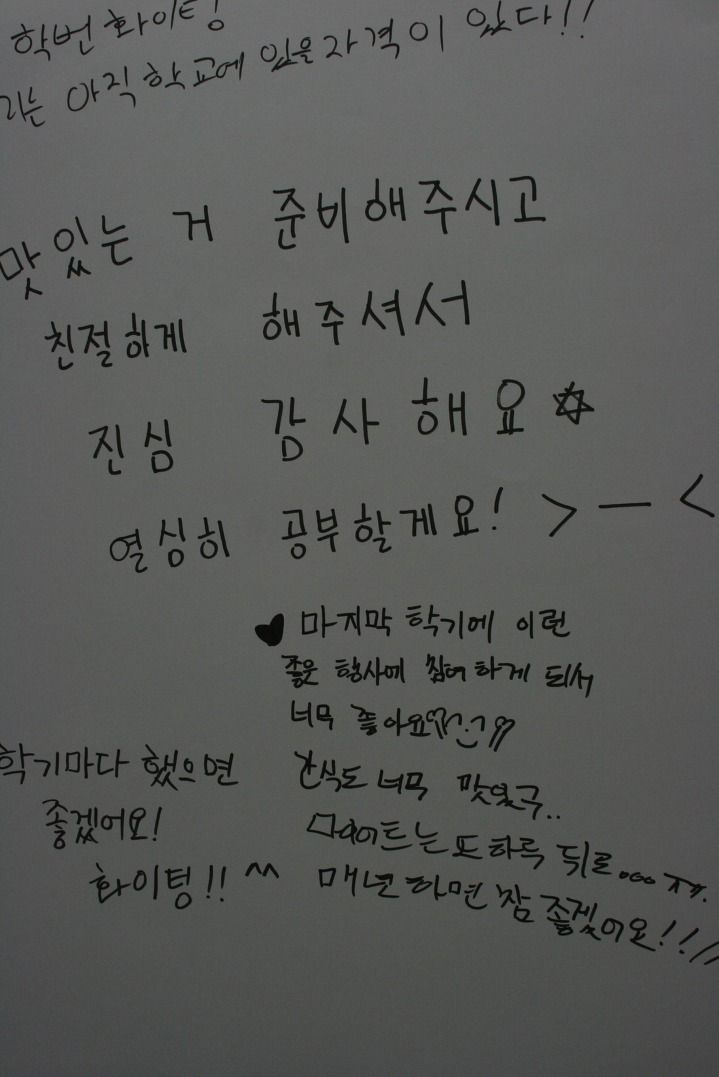 학번 화이팅!
리는 아직 학교에 있을 자격이 있다!!
맛있는 거 준비해주시고
친절하게 해주셔서
진심 감사해요
열심히 공부할게요! > — <
♥ 마지막 학기에 이런
좋은 행사에 참여하게 되서
너무 좋아요
간식도 너무 맛있구..
다이어트는 또 하루 뒤로... ㅠㅠ.
매년 하면 참 좋겠어요!!!!
학기마다 했으면
좋겠어요!
화이팅!! ^^